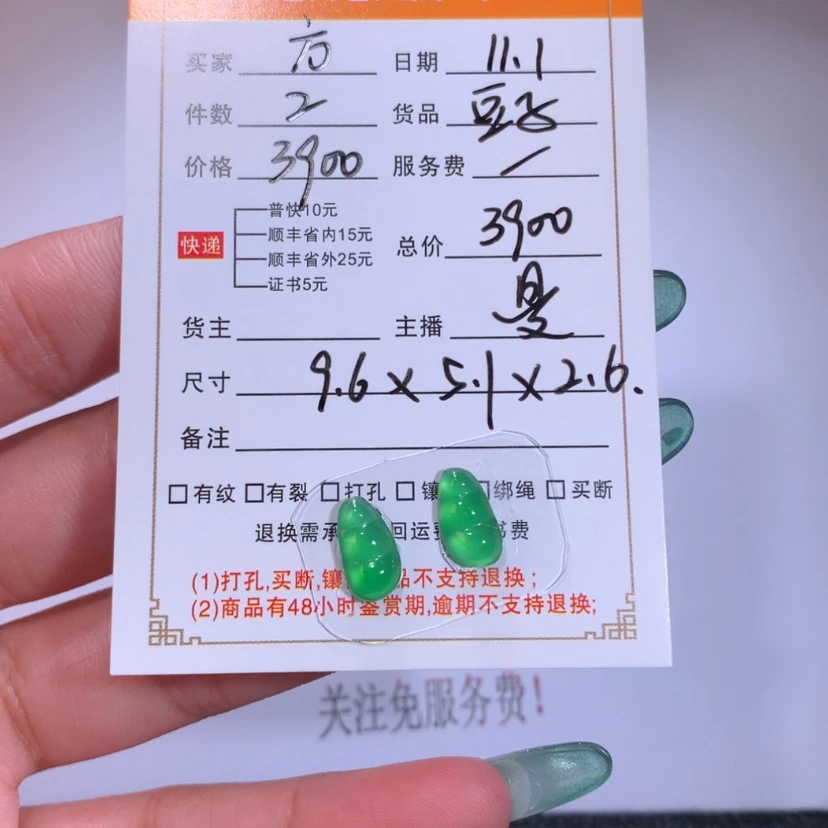 买家 方 日期 11.1
件数 2 货品 豆子
价格 3900 服务费 /
快递
普快10元
顺丰省内15元
顺丰省外25元
证书5元
总价 3900
货主 主播
尺寸 9.6 x 5.1 x 2.6.
备注
□有纹 □有裂 □打孔 □镶 □绑绳 □买断
退换需承 回运费 书费
(1)打孔,买断,镶 品不支持退换;
(2)商品有48小时鉴赏期,逾期不支持退换;
关注免服务费!